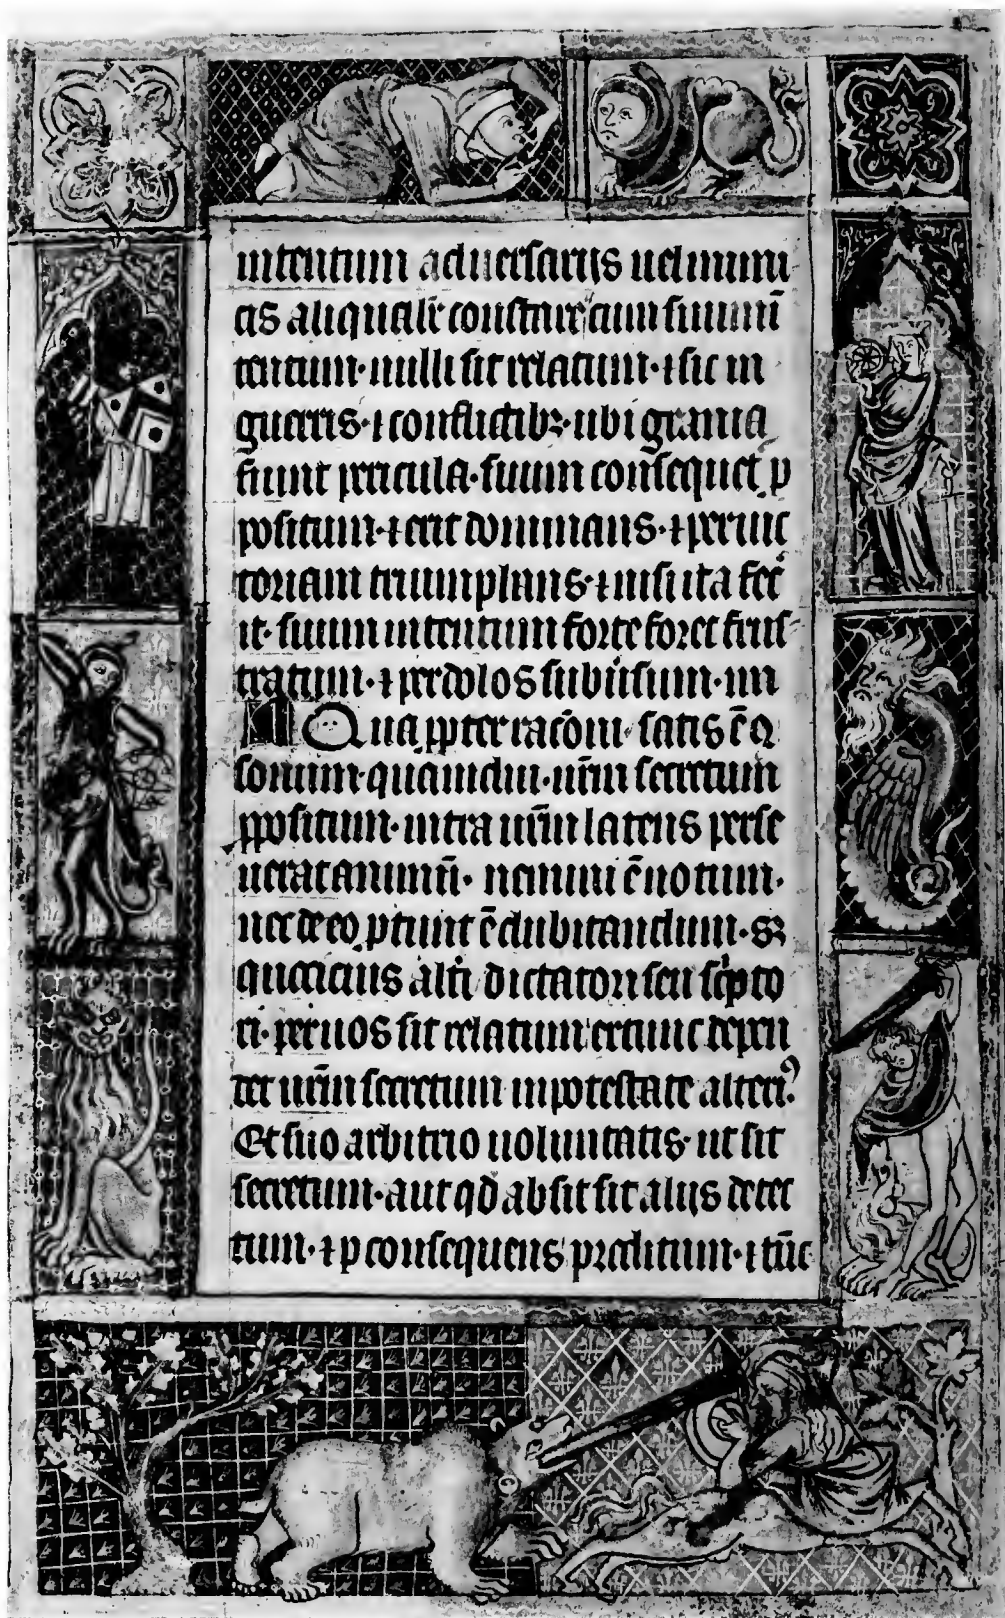 intentum aduersarijs uel inimi
cis aliqualit̄ constaret cum suum ī
tentum· nulli sit relatum· ⁊ sic in
guerris· ⁊ conflictibꝫ· ubi grauia
fiunt pericula· suum consequet̄ ꝓ
positum· ⁊ erit dominans· ⁊ per uic
toriam triumphans· ⁊ nisi ita fec̄
it· suum intentum forte foret frus
tratum· ⁊ per dolos subuersum·
Qua ꝓpter racōni· satis ē ꝯ
sonum· quamdiu· ur̄m secretum
ꝓpositum· intra ur̄m latens perse
uerat animū· nemini ē notum·
nec de eo ꝑtunc ē dubitandum· Sꝫ
quiccius alt̄i dictatori seu sc̄pto
ri· per uos sit relatum extunc depen
det ur̄m secretum in potestate alteriꝰ
Et suo arbitrio uoluntatis· ut sit
secretum· aut qd̄ absit sit alijs detec
tum· ⁊ ꝑ consequens proditum· ⁊ tūc